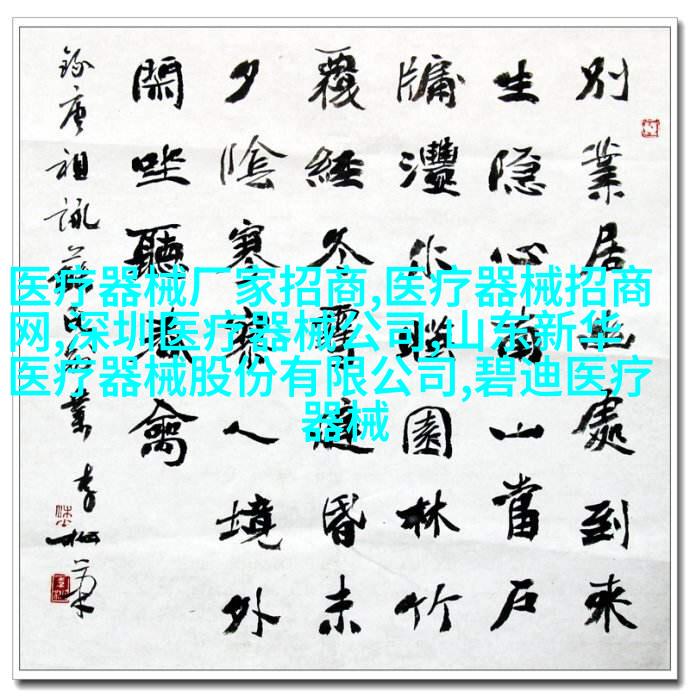 医疗器械厂家招商,医疗器械招商
网,深圳医疗器械公司,山东新华
医疗器械股份有限公司,碧迪医疗
器械
别業居幽處到来
生隐心南山當戶
牖灃水映園林竹
覆經冬雪庭昏未
夕陰寥寥人境外
閑坐聽春禽
錄唐祖詠蘇氏別業